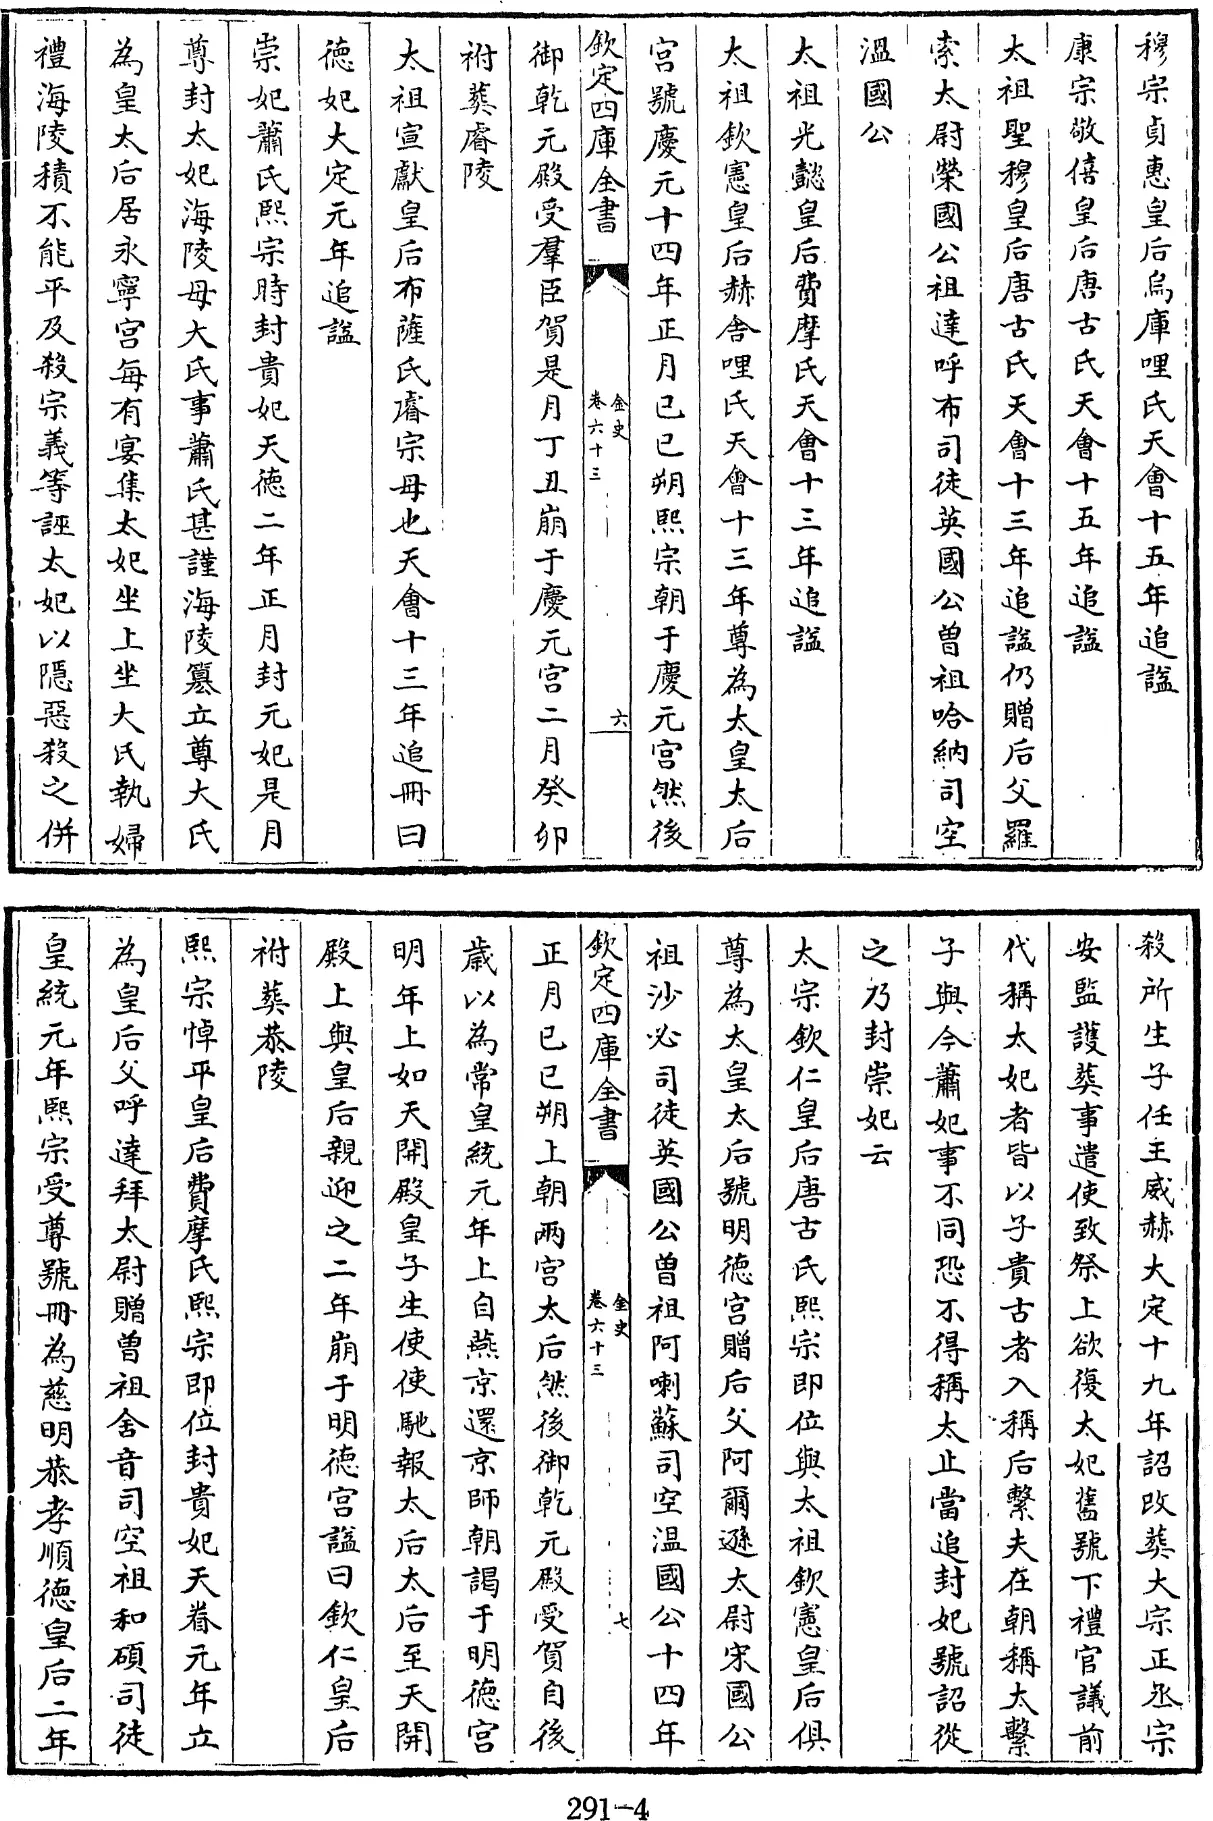 穆宗貞惠皇后烏庫哩氏天會十五年追諡
康宗敬僖皇后唐古氏天會十五年追諡
太祖聖穆皇后唐古氏天會十三年追諡仍贈后父羅
索太尉榮國公祖達呼布司徒英國公曾祖哈納司空
溫國公
太祖光懿皇后費摩氏天會十三年追諡
太祖欽憲皇后赫舍哩氏天會十三年尊為太皇太后
宮號慶元十四年正月己巳朔熙宗朝于慶元宮然後
欽定四庫全書
金史
卷六十三
六
御乾元殿受羣臣賀是月丁丑崩于慶元宮二月癸卯
祔葬睿陵
太祖宣獻皇后布薩氏睿宗母也天會十三年追冊曰
德妃大定元年追諡
崇妃蕭氏熙宗時封貴妃天德二年正月封元妃是月
尊封太妃海陵母大氏事蕭氏甚謹海陵簒立尊大氏
為皇太后居永寧宮每有宴集太妃坐上坐大氏執婦
禮海陵積不能平及殺宗義等誣太妃以隱惡殺之併
殺所生子任王威赫大定十九年詔改葬大宗正丞宗
安監護葬事遣使致祭上欲復太妃舊號下禮官議前
代稱太妃者皆以子貴古者入稱后繫夫在朝稱太繫
子與今蕭妃事不同恐不得稱太止當追封妃號詔從
之乃封崇妃云
太宗欽仁皇后唐古氏熙宗即位與太祖欽憲皇后俱
尊為太皇太后號明德宮贈后父阿爾遜太尉宋國公
祖沙必司徒英國公曾祖阿喇蘇司空温國公十四年
欽定四庫全書
金史
卷六十三
七
正月己巳朔上朝兩宮太后然後御乾元殿受賀自後
歲以為常皇統元年上自燕京還京師朝謁于明德宮
明年上如天開殿皇子生使使馳報太后太后至天開
殿上與皇后親迎之二年崩于明德宮諡曰欽仁皇后
祔葬恭陵
熙宗悼平皇后費摩氏熙宗即位封貴妃天眷元年立
為皇后父呼達拜太尉贈曾祖舍音司空祖和碩司徒
皇統元年熙宗受尊號冊為慈明恭孝順德皇后二年
291-4